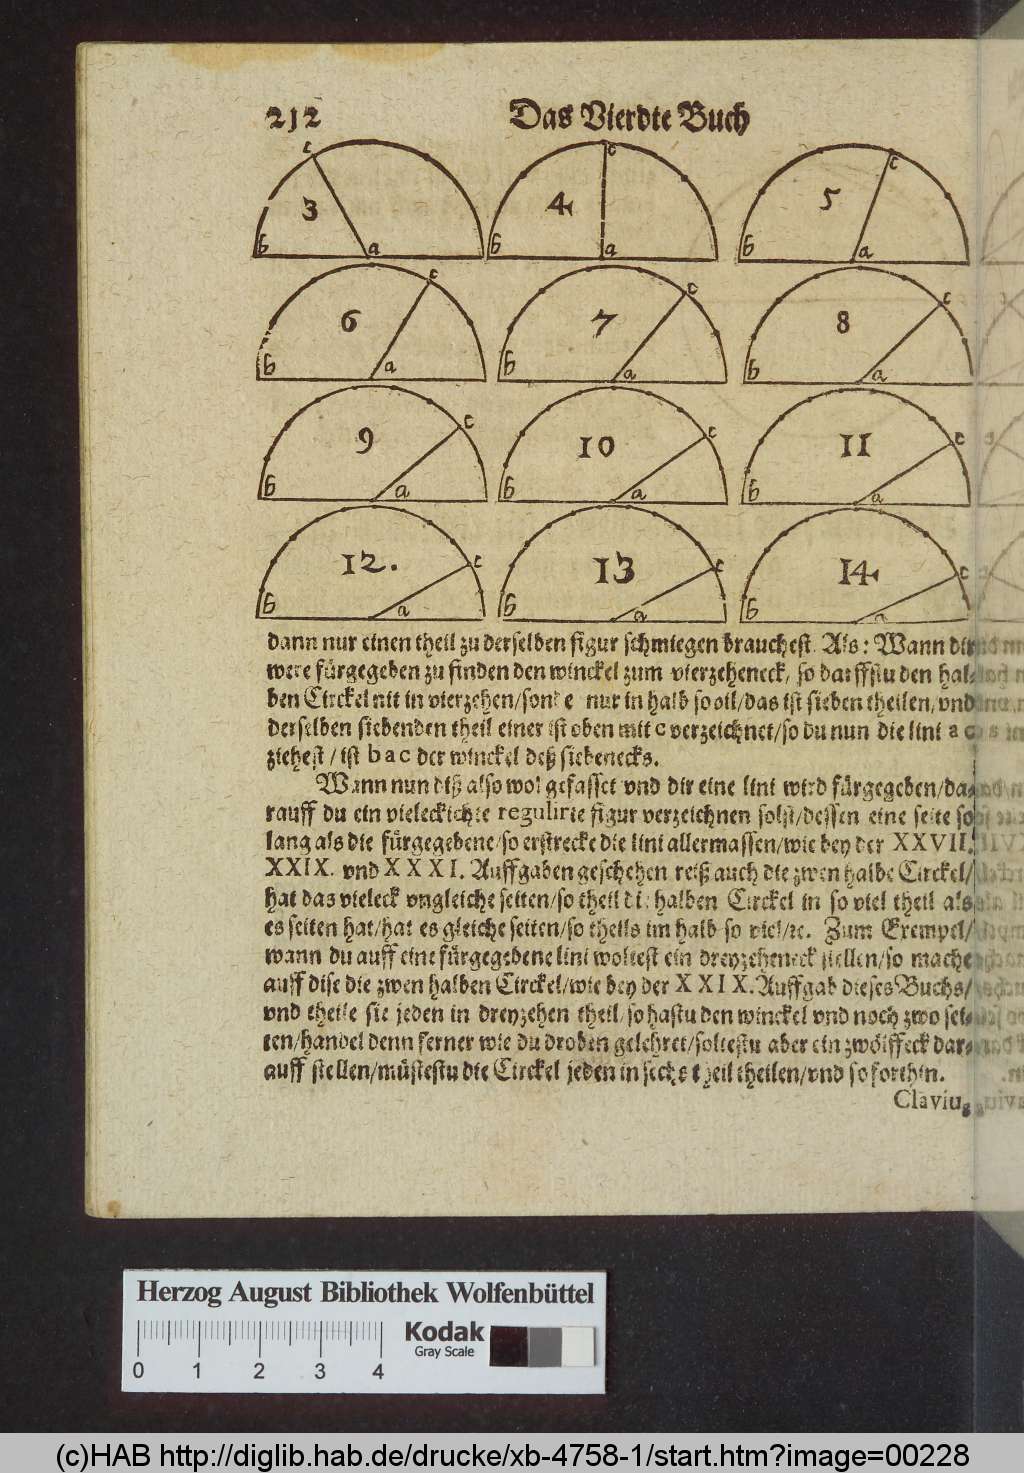 212
Das Vierdte Buch
c c c
3 4 5
b a b a b a
c c c
6 7 8
b a b a b a
c c c
9 10 11
b a b a b a
c c c
12. 13 14
b a b a b a
dann nur einen theil zu derselben figur schmiegen brauchest. Als: Wann dir
were fürgegeben zu finden den winckel zum vierzeheneck, so darffstu den hal-
ben Circkel nit in vierzehen/sonde nur in halb so vil/das ist sieben theilen, vnd
derselben siebenden theil einer ist oben mit c verzeichnet/so du nun die lini a c
ziehest/ist b a c der winckel deß siebenecks.
Wann nun diß also wol gefasset vnd dir eine lini wird fürgegeben/da-
rauff du ein vieleckichte regulirte figur verzeichnen solst/dessen eine seite so
lang als die fürgegebene/so erstrecke die lini allermassen/wie bey der XXVII.
XXIX. vnd XXXI. Auffgaben geschehen reiß auch die zwen halbe Circkel/
hat das vieleck vngleiche seiten/so theil die halben Circkel in so viel theil als
es seiten hat/hat es gleiche seiten/so theils im halb so viel/ꝛc. Zum Exempel/
wann du auff eine fürgegebene lini woltest ein dreyzeheneck stellen/so mache
auff dise die zwen halben Circkel/wie bey der XXIX. Auffgab dieses Buchs/
vnd theile sie jeden in dreyzehen theil/so hastu den winckel vnd noch zwo sei-
ten/handel denn ferner wie du droben gelehret/soltestu aber ein zwölffeck dar-
auff stellen/müstestu die Circkel jeden in sechs theil theilen/vnd so forthin.
Clavius,
Herzog August Bibliothek Wolfenbüttel
Kodak
Gray Scale
0 1 2 3 4
(c)HAB http://diglib.hab.de/drucke/xb-4758-1/start.htm?image=00228